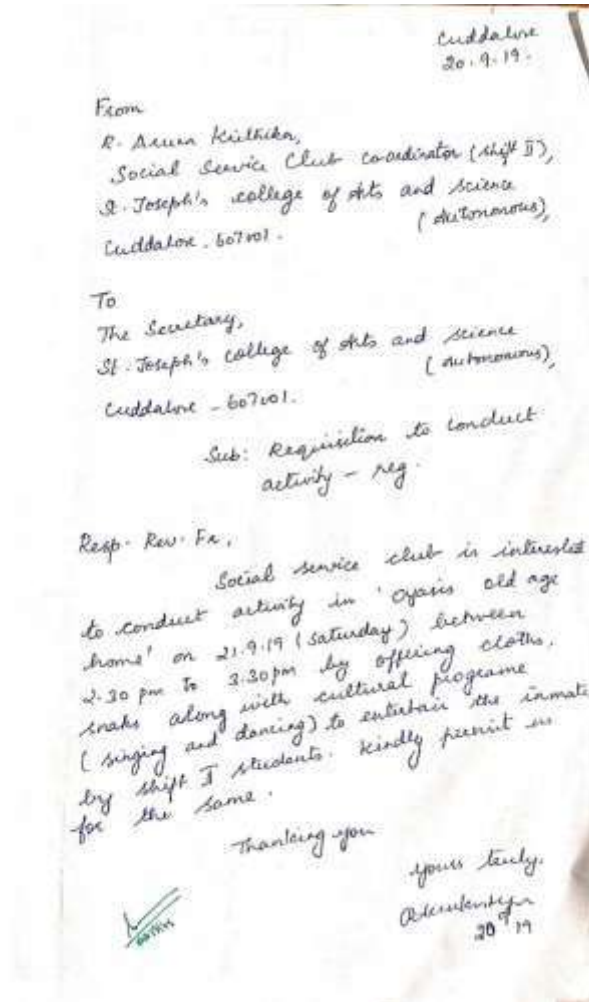 Cuddalore
20.9.19.
From
R. Aruna Kiruthika,
Social Service Club co-ordinator (shift II),
St. Joseph's college of Arts and science
(Autonomous),
Cuddalore - 607001.
To
The Secretary,
St. Joseph's college of Arts and science
(Autonomous),
Cuddalore - 607001.
Sub: Requisition to conduct
activity - reg.
Resp. Rev. Fr,
Social service club is interested
to conduct activity in 'oyasis old age
home' on 21.9.19 (Saturday) between
2.30 pm to 3.30pm by offering cloths,
snaks along with cultural programe
(singing and dancing) to entertain the inmates
by shift II students. kindly permit us
for the same.
Thanking you
yours truly,
20 9 19